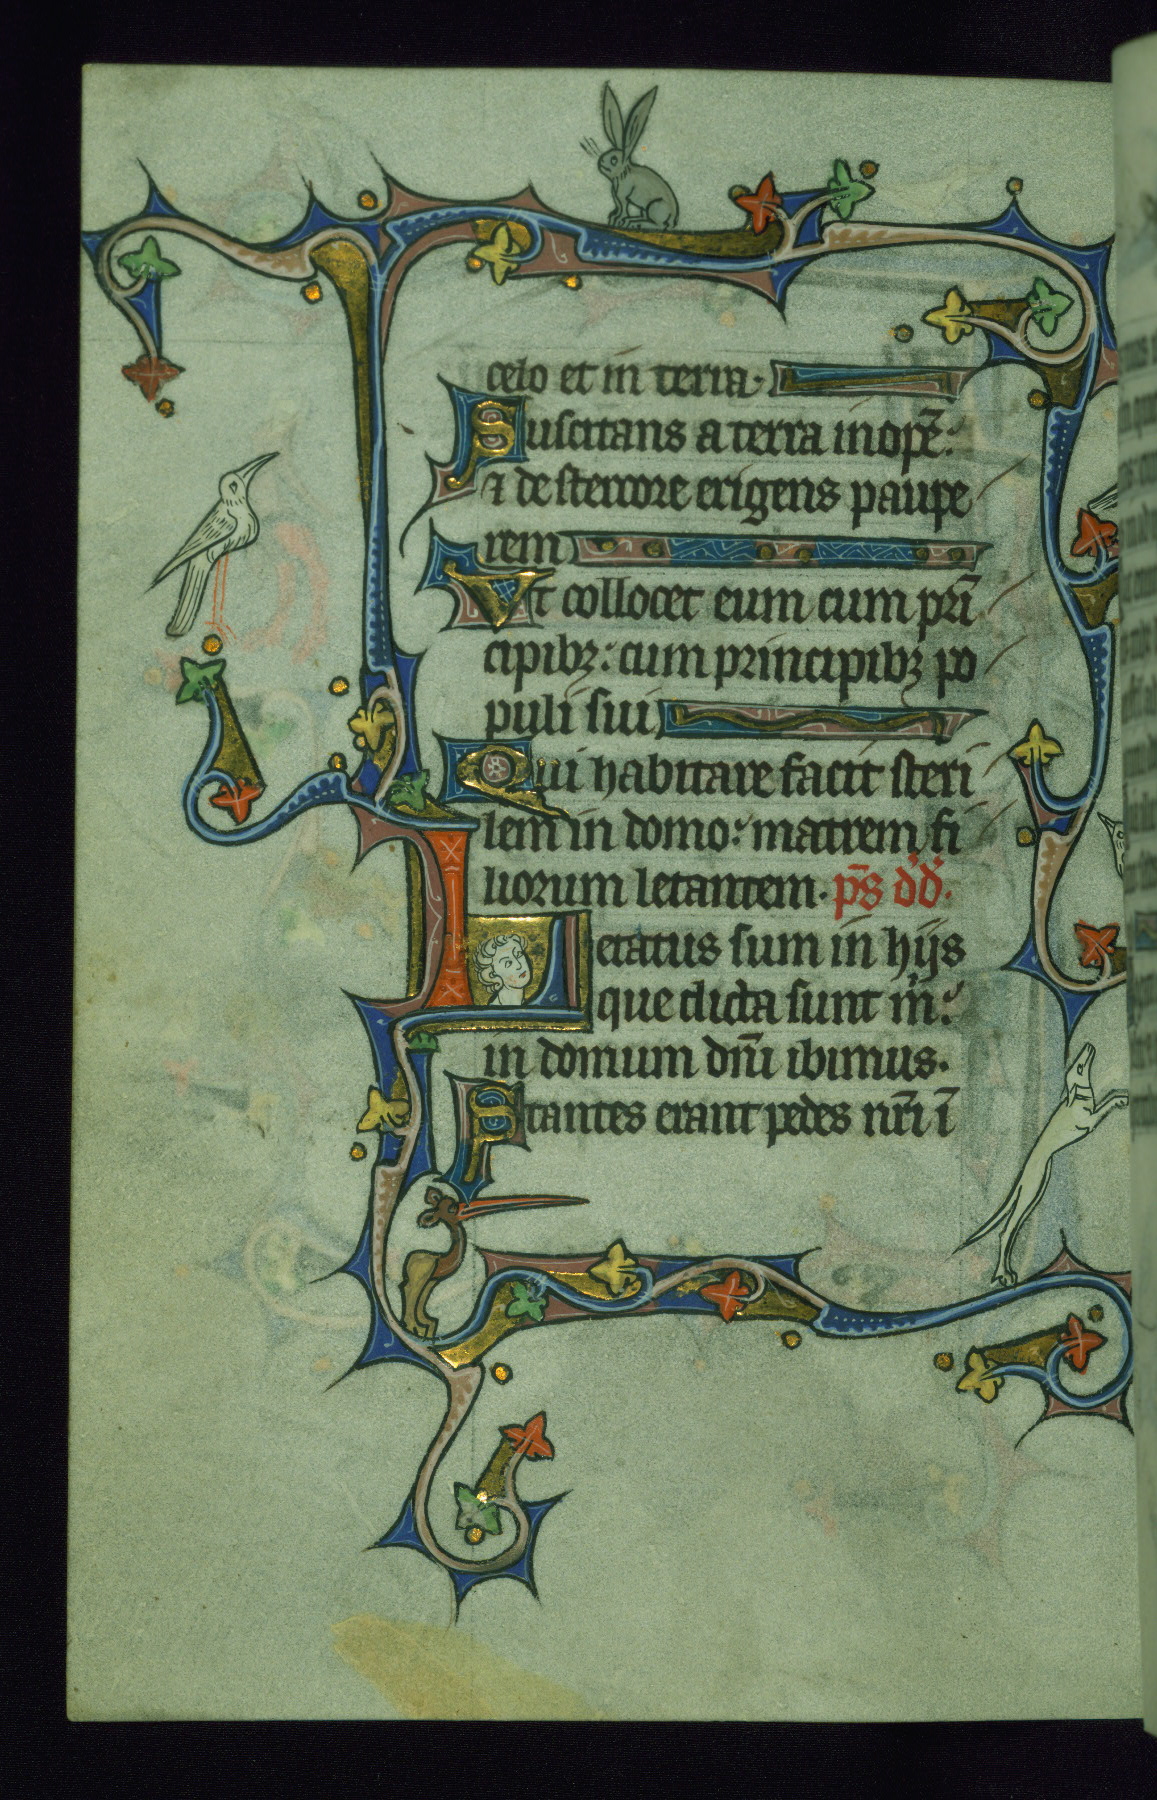 celo et in terra.
Suscitans a terra inopē:
⁊ de stercore erigens paupe
rem
Vt collocet eum cum prī
cipibꝫ: cum principibꝫ po
puli sui.
Qui habitare facit steri
lem in domo: matrem fi
liorum letantem. p̄s d̓d̓.
Letatus sum in hijs
que dicta sunt m̄:
in domum dn̄i ibimus.
Stantes erant pedes nr̄i ī